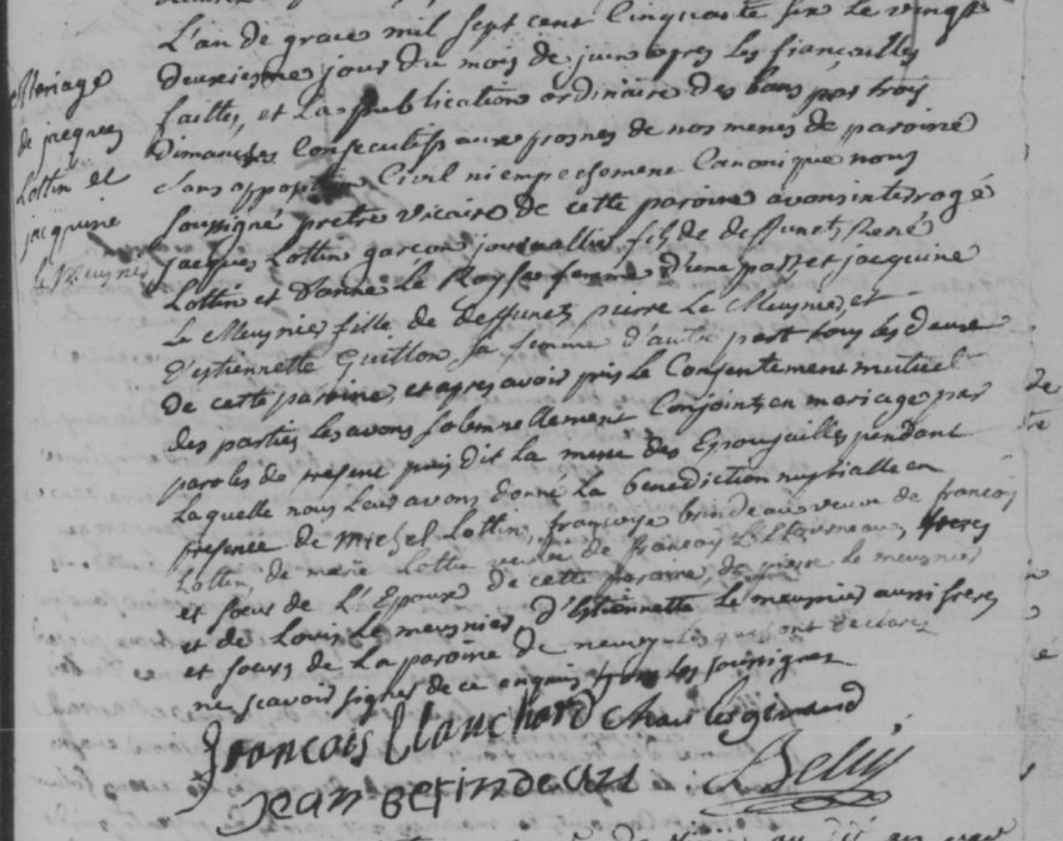 Mariage
de jacques
Lottin et
jacquine
Le Meusnier
L'an de grace mil sept cent Cinquante six le vingt
deuxiesme jour du mois de juin apres les fiancailles
faittes, et La publication ordinaire des bans par trois
Dimanches Consecutifs aux prosnes de nos messes de paroisse
sans opposition Civil ni empeschement Canonique nous
soussigné pretre vicaire de cette paroisse avons interrogé
jacques Lottin garçon journallier fils de deffunts René
Lottin et d'anne Le Roy sa femme d'une part, et jacquine
Le Meusnier fille de deffunts pierre Le Meusnier, et
d'estiennette Guillon sa femme d'autre part tous les deux
de cette paroisse, et apres avoir pris le Consentement mutuel
des parties, les avons solemnellement Conjoints en mariage par
paroles de present puis dit la messe des Epousailles pendant
Laquelle nous leur avons donné La benediction nuptialle en
presence de michel Lottin, françoise brindeau veuve de francois
Lottin, de marie Lottin veuve de francois freres
et soeur de L'Epoux de cette paroisse, de pierre le meusnier
et de Louis Le meusnier, d'Estiennette Le meusnier aussi freres
et soeurs de La paroisse de neuvy lesquels ont declaré
ne scavoir signer de ce enquis les soussignes
francois Charles girard
jean